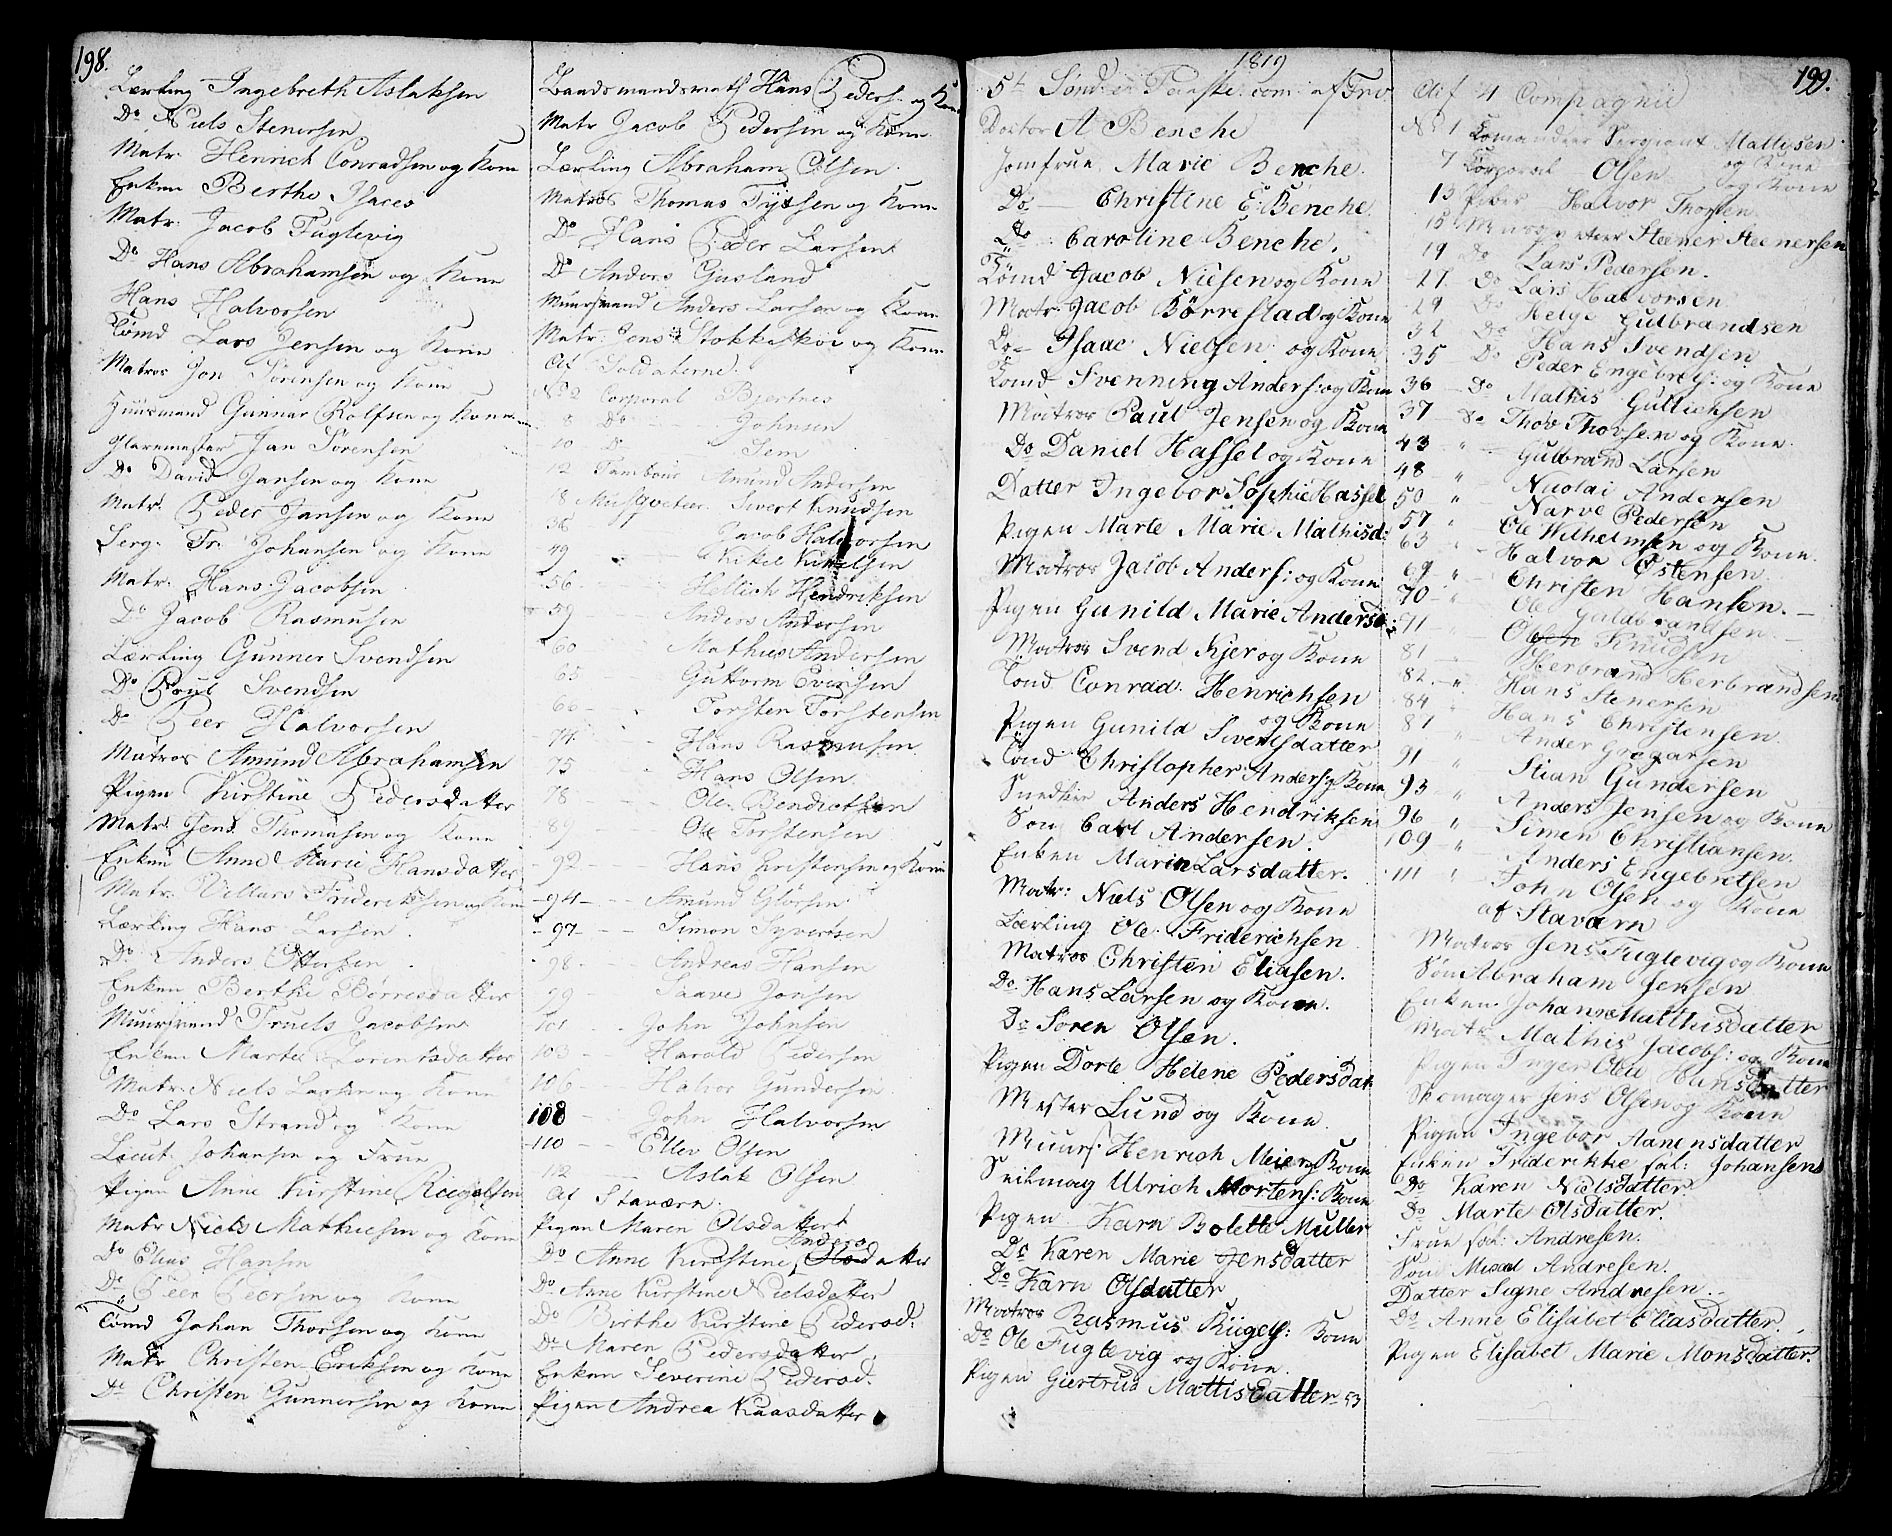 198.
Lærling Ingebreth Aslaksen
Do Niels Stenersen
Matr: Henrich Conradsen og Kone
Enken Berthe Isaces
Matr: Jacob Fuglevig
Do Hans Abrahamsen og Kone
Hans Halvorsen
Tömd Lars Jensen og Kone
Matros Jon Sörensen og Kone
Huusmand Gunnar Rolfsen og Kone
Glarmester Jan Sörensen
Do David Jansen og Kone
Matr: Peder Jansen og Kone
Serg: Fr: Johansen og Kone
Matr: Hans Jacobsen
Do Jacob Rasmusen
Lærling Gunner Svendsen
Do Poul Svendsen
Do Peer Halvorsen
Matros Amund Abrahamsen
Pigen Kirstine Pedersdatter
Matr: Jens Thomasen og Kone
Enken Anne Marie Hansdatter
Matr: Vellars Frideriksen og Kone
Lærling Hans Larsen
Do Anders Ottersen
Enken Berthe Börresdatter
Muursvend Truels Jacobsen
Enken Marte Lorentsdatter
Matr: Niels Larsen og Kone
Do Lars Strand og Kone
Lieut: Johansen og Frue
Pigen Anne Kirstine Riegelsen
Matr Niels Mathiesen og Kone
Do Elias Hansen
Do Peer Peersen og Kone
Tömd Johan Thorsen og Kone
Matr Christen Eriksen og Kone
Do Christen Gunnersen og Kone
Baadsmandsmath Hans Peders: og Kone
Matr Jacob Pedersen og Kone
Lærling Abraham Olsen
Matros Thomas Tyssen og Kone
Do Hans Peder Larsen
Do Anders Gusland
Muursvend Anders Larsen og Kone
Matr: Jens Stokkaskoe og Kone
Af Soldaterne
No 2 Corporal Bjertnes
8 Do Johnsen
10 D Sem
12 Tambour Amund Andersen
8 Musqveteer Sivert Knudsen
38 Jacob Halvorsen
49 Kikel Kikelsen
56 Hellich Hendriksen
59 Anders Andersen
60 Mathies Andersen
65 Guttorm Evensen
66 Torsten Torstensen
74 Hans Rasmusen
75 Hans Olsen
78 Ole Bendictsen
81 Ole Torstensen
92 Hans Christensen og Kone
94 Amund Glörsen
97 Simon Syvertsen
98 Andreas Hansen
99 Saave Jonsen
101 John Johnsen
103 Harald Pedersen
106 Halvor Gundersen
108 John Halvorsen
110 Ellev Olsen
112 Aslak Olsen
Af Staværn
Pigen Maren Olsdatter
Do Anne Kirstine Andersdatter
Do Anne Kirstine Nielsdatter
Do Birthe Kirstine Pedersd:
Do Maren Pedersdatter
Enken Severine Pedersd.
Pigen Andrea Kaasdatter
1819
5te Sönd: i Faaste: com: af Frv
Doctor A Benche
Jomfrue Marie Benche
Do Christine E: Benche
Do Caroline Benche.
Tömd Jacob Nielsen og Kone
Matr: Jacob Börrestad og Kone
Do Isaac Nielsen og Kone
Tömd Svenning Anders: og Kone
Matros Paul Jensen og Kone
Do Daniel Hassel og Kone
Datter Ingebor Sophie Hassel
Pigen Marte Marie Mathisd:
Matros Jacob Anders: og Kone
Pigen Gunild Marie Andersd:
Matros Svend Kjer og Kone
Tömd Conrad Henrichsen
og Kone
Pigen Gunild Sivertsdatter
Tömd Christopher Anders: og Kone
Snedker Anders Hendriksen
Sön Carl Andersen.
Enken Maria Larsdatter.
Matr: Niels Olsen og Kone
Lærling Ole Friderichsen
Matros Christen Eliasen.
Do Hans Larsen og Kone.
Do Sören Olsen.
Pigen Dorte Helene Pedersdat
Mester Lund og Kone
Muurs: Henrich Meier Kone
Seilmag Ulrich Mortens: Kone
Pigen Karn Bolette Muller
Do Karen Marie Jensdatter
Do Karn Olsdatter
Matros Rasmus Riigels: Kone
Do Ole Fuglevig og Kone
Pigen Giertrud Mattisdatter 53
199.
Af 4 Compagnie
No 1 Comandeer Sergiant Mathisen
og Kone
7 Corporal Olsen og Kone
13 Piber Halvor Thorsten
15 Musqveteer Steener Steenersen
19 Do Lars Pedersen.
27. Do Lars Halvorsen
29 Do Helge Gulbrandsen
32 Do Hans Svendsen
35 Do Peder Engebrets: og Kone
36 Do Mathis Gullichsen
37 Do Thov Thovsen og Kone.
43 Gulbrand Larsen
48 Nicolai Andersen
50 Narve Pedersen
57 Ole Wilhelmsen og Kone.
63 Halvor Östensen
69 Christen Hansen.
70 Ole Guldbrandsen
71 Knudsen
81 Herbrand Herbrandsen
82 Hans Stenersen
84 Hans Christensen
87 Ander Gregarsen
91 Stian Gundersen
93 Anders Jensen og Kone
96 Simen Christiansen.
109 Anders Engebretsen
111 John Olsen og Kone
af Stavarn
Matros Jens Fuglevig og Kone
Sön Abraham Jensen
Enken Johane Matthisdatter
Matr Mathis Jacobs: og Kone
Pigen Inger Olea Hansdatter
Skomager Jens Olsen og Kone
Pigen Ingebor Aamensdatter
Enken Friderikke sal: Johansens
Do Karen Nielsdatter.
Do Marte Olsdatter.
Frue sal: Andresen.
Sön Misael Andresen.
Datter Signe Andresen.
Do Anne Elisabet Eliasdatter.
Pigen Elisabet Marie Monsdatter.